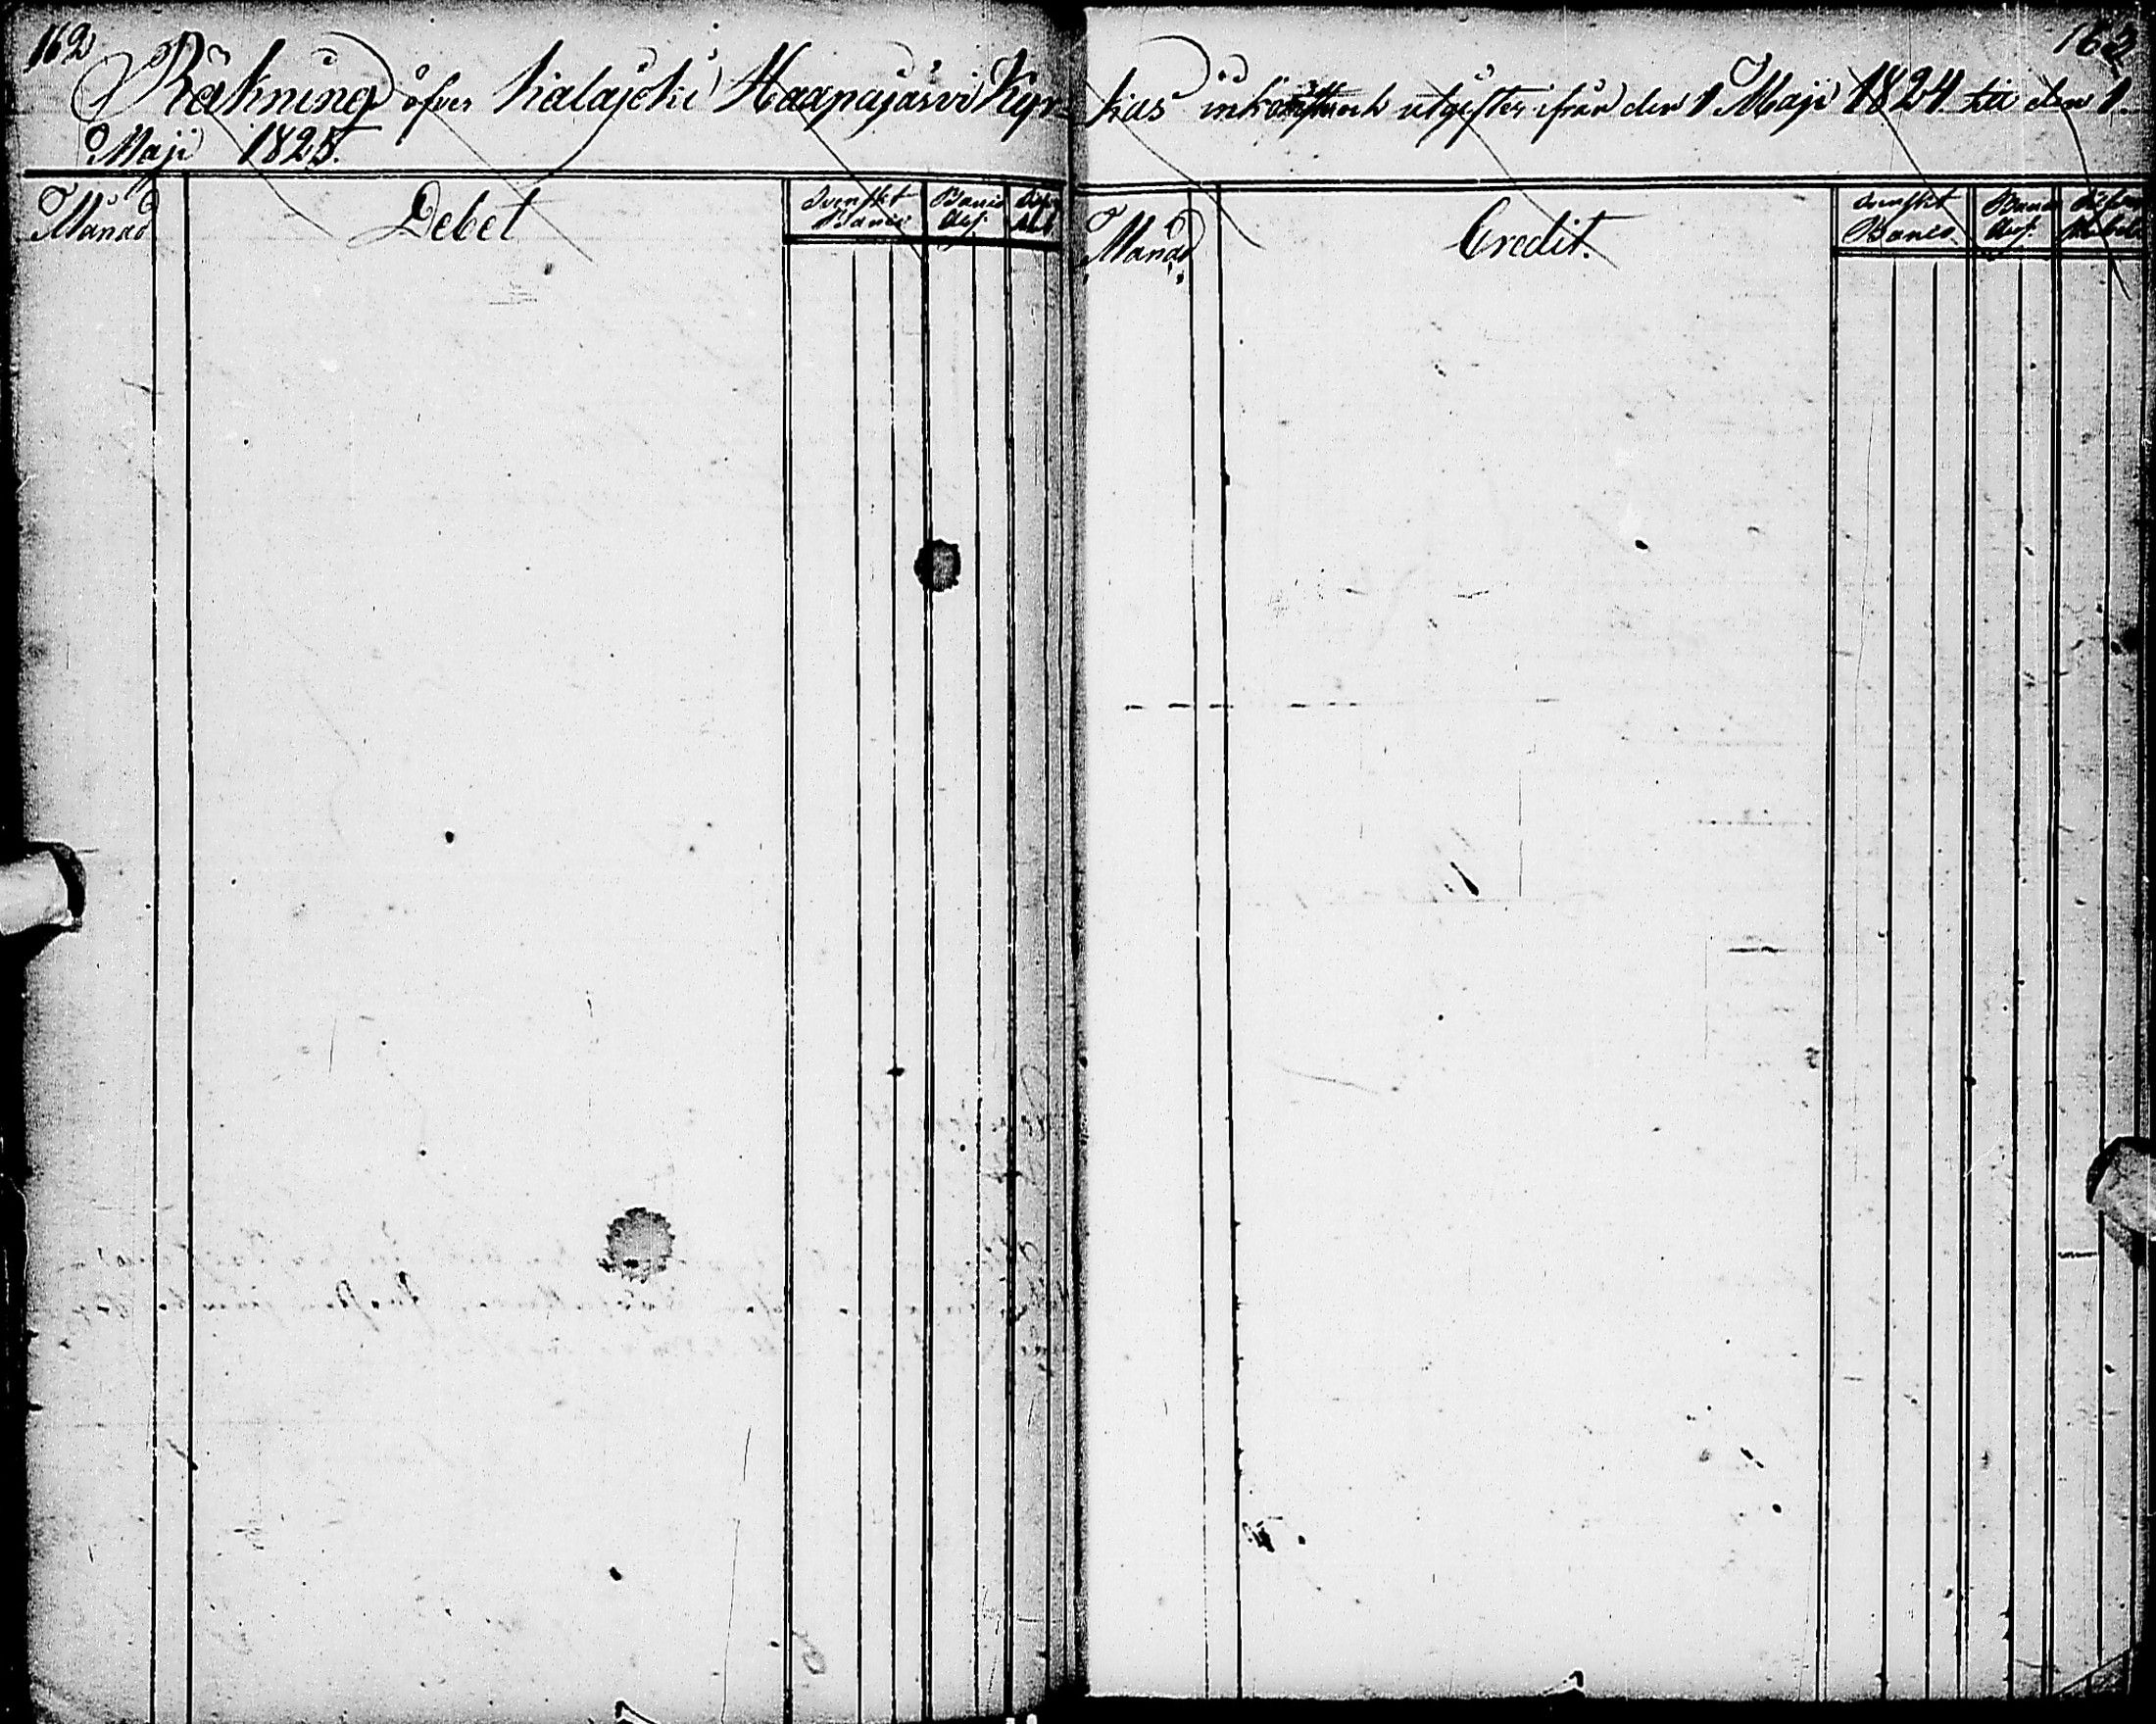 162
162
Räkning öfver Kalajoki Haapajärvi Kyr-kas inkomst och utgifter ifrån den 1 Maji 1824 till den 1.
Maji 1825.
Månad Debet Svenskt Banco Banco Ass.
Månad Credit. Svenskt Banco Banco Ass. Silfver Rubel